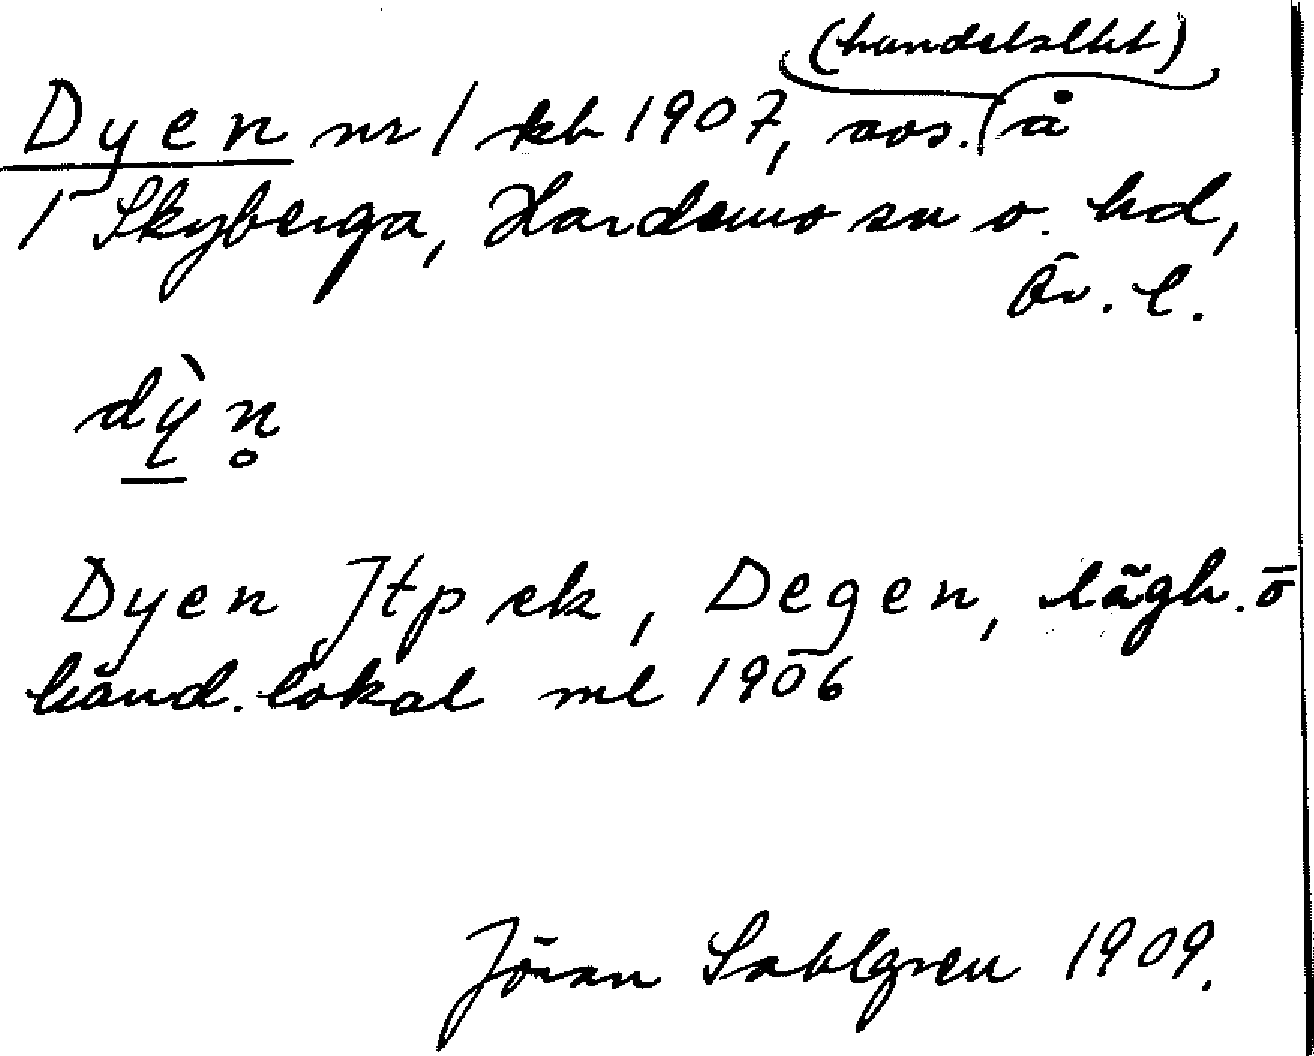 (handelslht)
Dyen nr 1 kb 1907, avs. å
1 Skyberga, Hardemo sn o. hd,
Ör. l.
dỳn̥
Dyen Jtp ek, Degen, lägh. o
händ. lokal ml 1906
Jöran Sahlgren 1909.